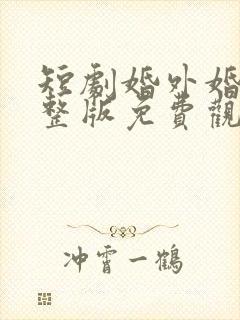 短劇婚外婚
整版免費觀
冲霄一鶴